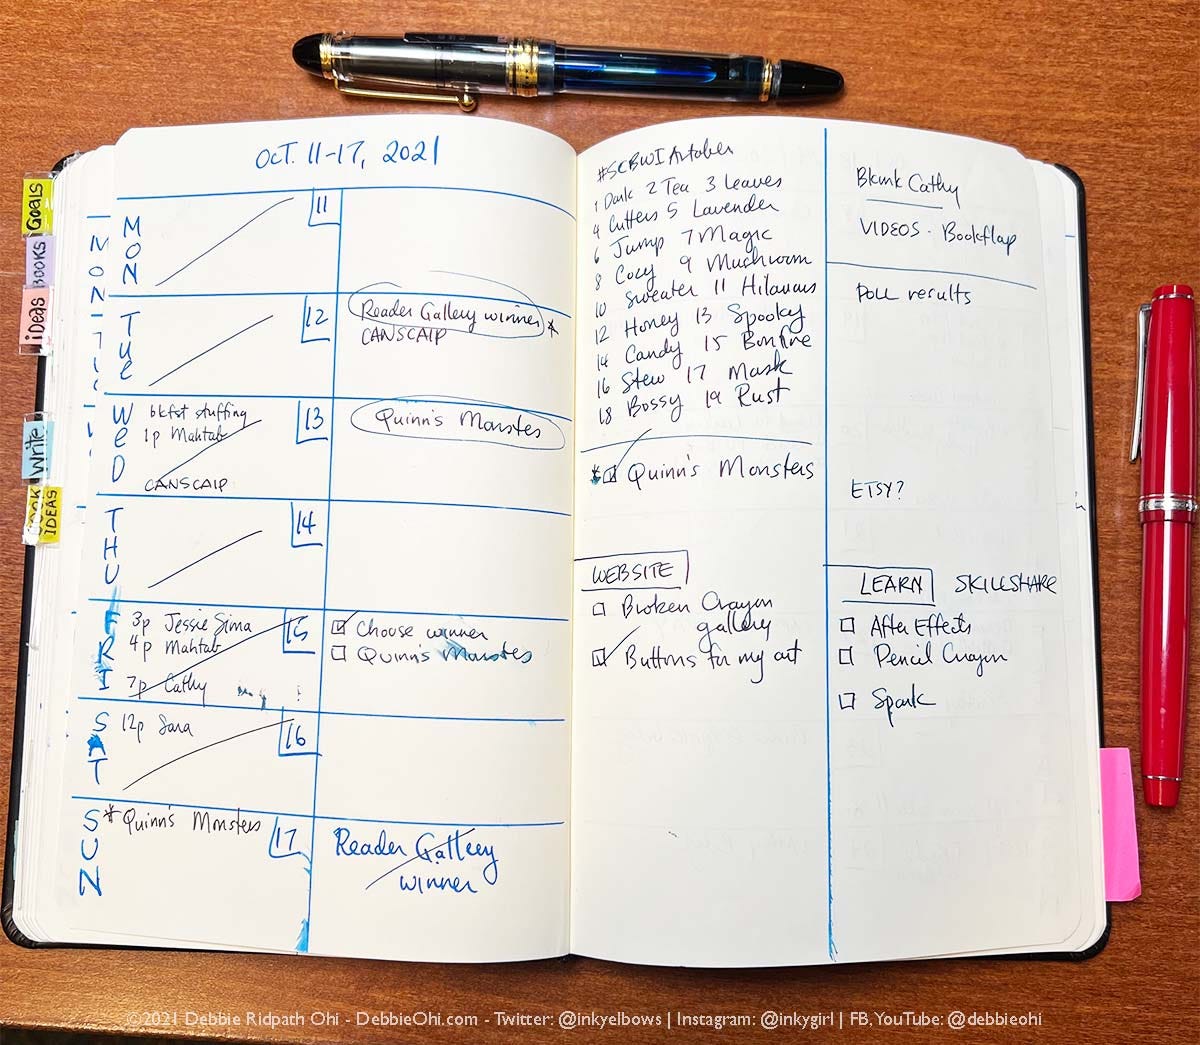 GOALS
BOOKS
iDEAS
Write
BOOK
IDEAS
OCT. 11-17, 2021
MON
11
TUE
12
Reader Gallery winner *
CANSCAIP
WED
bkfst stuffing
1p Mahtab
CANSCAIP
13
Quinn's Monsters
THU
14
FRI
3p Jessie Sima
4p Mahtab
7p Cathy
15
Choose winner
Quinn's Monsters
SAT
12p Sara
16
SUN
* Quinn's Monsters
17
Reader Gallery
winner
#SCBWI Artober
1 Dark 2 Tea 3 Leaves
4 Critters 5 Lavender
6 Jump 7 Magic
8 Cozy 9 Mushroom
10 Sweater 11 Hilarious
12 Honey 13 Spooky
14 Candy 15 Bonfire
16 Stew 17 Mask
18 Bossy 19 Rust
* Quinn's Monsters
WEBSITE
Broken Crayon
gallery
Buttons for my art
Blank Cathy
VIDEOS - Bookflap
Poll results
ETSY?
LEARN SKILLSHARE
After Effects
Pencil Crayon
Spark
©2021 Debbie Ridpath Ohi - DebbieOhi.com - Twitter: @inkyelbows | Instagram: @inkygirl | FB, YouTube: @debbieohi